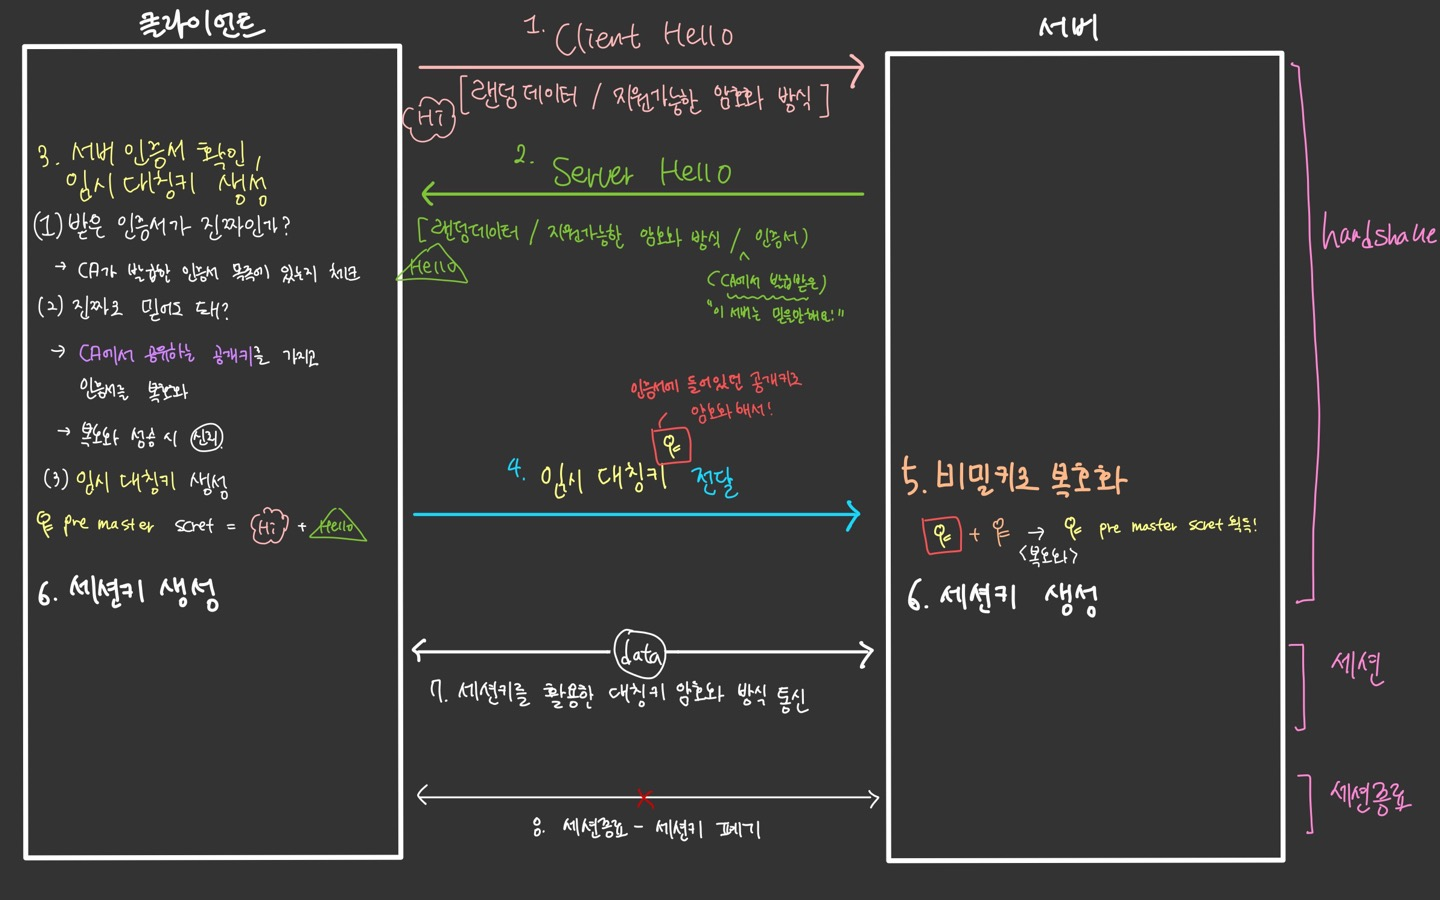 클라이언트
서버
1. Client Hello
[랜덤데이터 / 지원가능한 암호화 방식]
Hi
2. Server Hello
[랜덤데이터 / 지원가능한 암호화 방식 / 인증서)
Hello
(CA에서 발급받은)
"이 서버는 믿을만해요!"
3. 서버 인증서 확인,
임시 대칭키 생성
(1) 받은 인증서가 진짜인가?
→ CA가 발급한 인증서 목록에 있는지 체크
(2) 진짜로 믿어도 돼?
→ CA에서 공유하는 공개키를 가지고
인증서를 복호화
→ 복호화 성승 시 신뢰
(3) 임시 대칭키 생성
pre master scret = Hi + Hello
인증서에 들어있던 공개키로
암호화해서!
4. 임시 대칭키 전달
5. 비밀키로 복호화
+ → pre master scret 획득!
<복호화>
6. 세션키 생성
6. 세션키 생성
data
7. 세션키를 활용한 대칭키 암호화 방식 통신
8. 세션종료 - 세션키 폐기
handshake
세션
세션종료